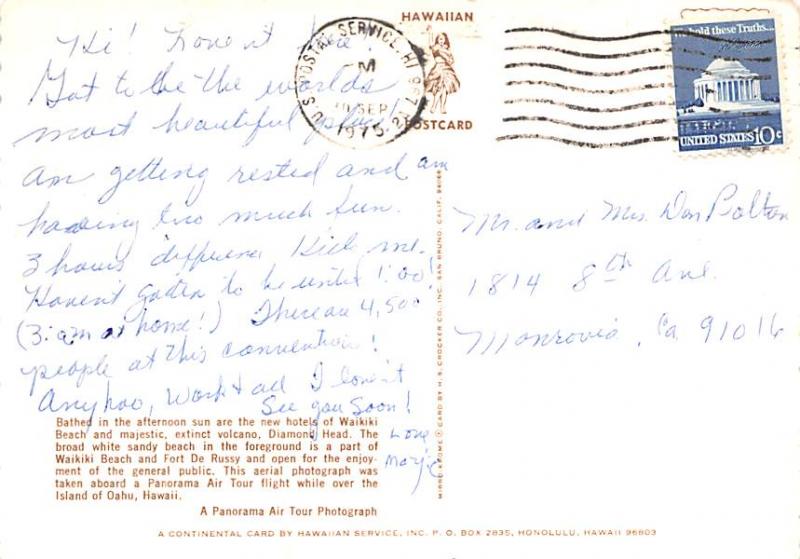 HAWAIIAN
POSTCARD
U.S. POSTAL SERVICE, HI 967
PM
10 SEP
1975
We hold these Truths...
UNITED STATES 10c
Hi! Love it here!
Got to be the worlds
most beautiful place!
Am getting rested and am
having two much fun.
3 hours difference Kill me.
Haven't gotten to be until 1:00!
(3: am at home!) There are 4,500
people at this convention!
Anyhoo, Work & all I love it
See you Soon!
Love
Marji
Mr. and Mrs. Don Polton
1814 8th Ave.
Monrovia, Ca 91016
Bathed in the afternoon sun are the new hotels of Waikiki
Beach and majestic, extinct volcano, Diamond Head. The
broad white sandy beach in the foreground is a part of
Waikiki Beach and Fort De Russy and open for the enjoy-
ment of the general public. This aerial photograph was
taken aboard a Panorama Air Tour flight while over the
Island of Oahu, Hawaii.
A Panorama Air Tour Photograph
MIRRO-KROME ® CARD BY H. S. CROCKER CO., INC. SAN BRUNO, CALIF.
A CONTINENTAL CARD BY HAWAIIAN SERVICE, INC. P. O. BOX 2835, HONOLULU, HAWAII 96803